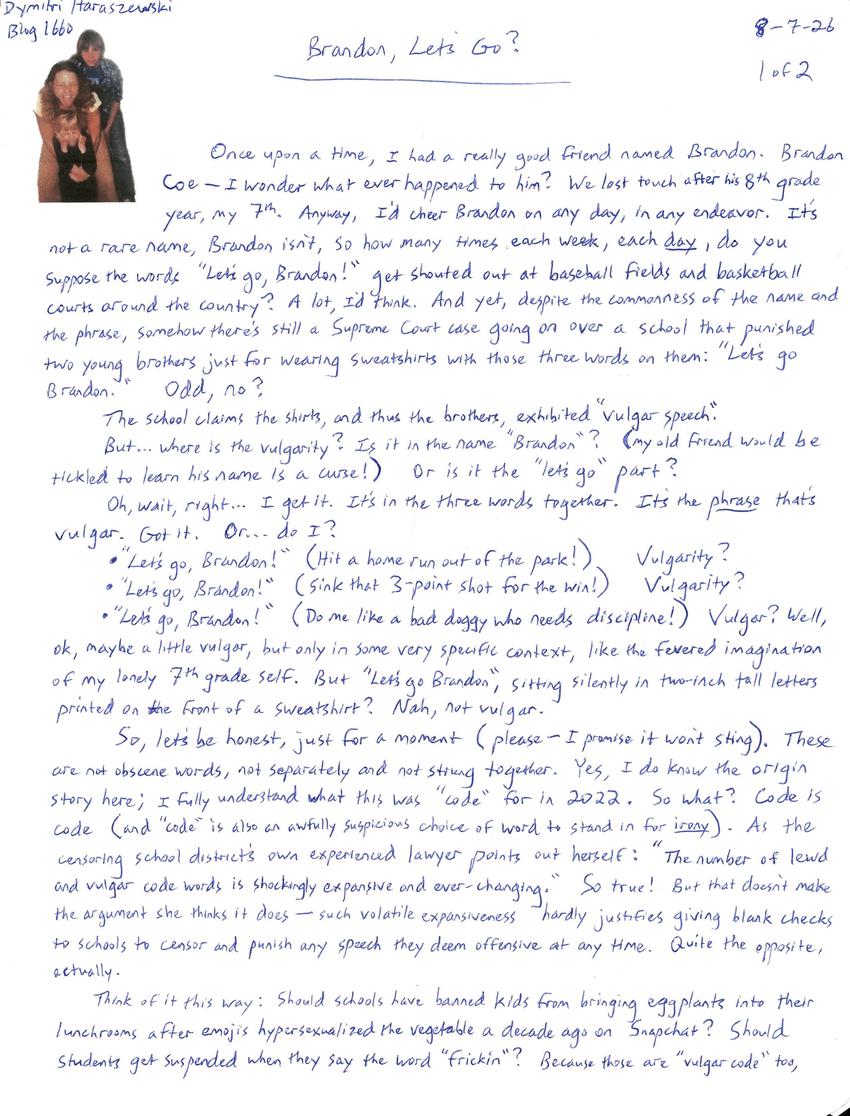 Dymitri Haraszewski
Blog 1660
8-7-26
Brandon, Let's Go?
1 of 2
Once upon a time, I had a really good friend named Brandon. Brandon
Coe — I wonder what ever happened to him? We lost touch after his 8th grade
year, my 7th. Anyway, I'd cheer Brandon on any day, in any endeavor. It's
not a rare name, Brandon isn't, so how many times each week, each day, do you
suppose the words "Let's go, Brandon!" get shouted out at baseball fields and basketball
courts around the country? A lot, I'd think. And yet, despite the commonness of the name and
the phrase, somehow there's still a Supreme Court case going on over a school that punished
two young brothers just for wearing sweatshirts with those three words on them: "Let's go
Brandon." Odd, no?
The school claims the shirts, and thus the brothers, exhibited "vulgar speech".
But... where is the vulgarity? Is it in the name "Brandon"? (my old friend would be
tickled to learn his name is a curse!) Or is it the "let's go" part?
Oh, wait, right... I get it. It's in the three words together. It's the phrase that's
vulgar. Got it. Or... do I?
• "Let's go, Brandon!" (Hit a home run out of the park!) Vulgarity?
• "Let's go, Brandon!" (Sink that 3-point shot for the win!) Vulgarity?
• "Let's go, Brandon!" (Do me like a bad doggy who needs discipline!) Vulgar? Well,
ok, maybe a little vulgar, but only in some very specific context, like the fevered imagination
of my lonely 7th grade self. But "Let's go Brandon", sitting silently in two-inch tall letters
printed on the front of a sweatshirt? Nah, not vulgar.
So, let's be honest, just for a moment (please — I promise it won't sting). These
are not obscene words, not separately and not strung together. Yes, I do know the origin
story here; I fully understand what this was "code" for in 2022. So what? Code is
code (and "code" is also an awfully suspicious choice of word to stand in for irony). As the
censoring school district's own experienced lawyer points out herself: "The number of lewd
and vulgar code words is shockingly expansive and ever-changing." So true! But that doesn't make
the argument she thinks it does — such volatile expansiveness hardly justifies giving blank checks
to schools to censor and punish any speech they deem offensive at any time. Quite the opposite,
actually.
Think of it this way: Should schools have banned kids from bringing eggplants into their
lunchrooms after emojis hypersexualized the vegetable a decade ago on Snapchat? Should
students get suspended when they say the word "frickin"? Because those are "vulgar code" too,